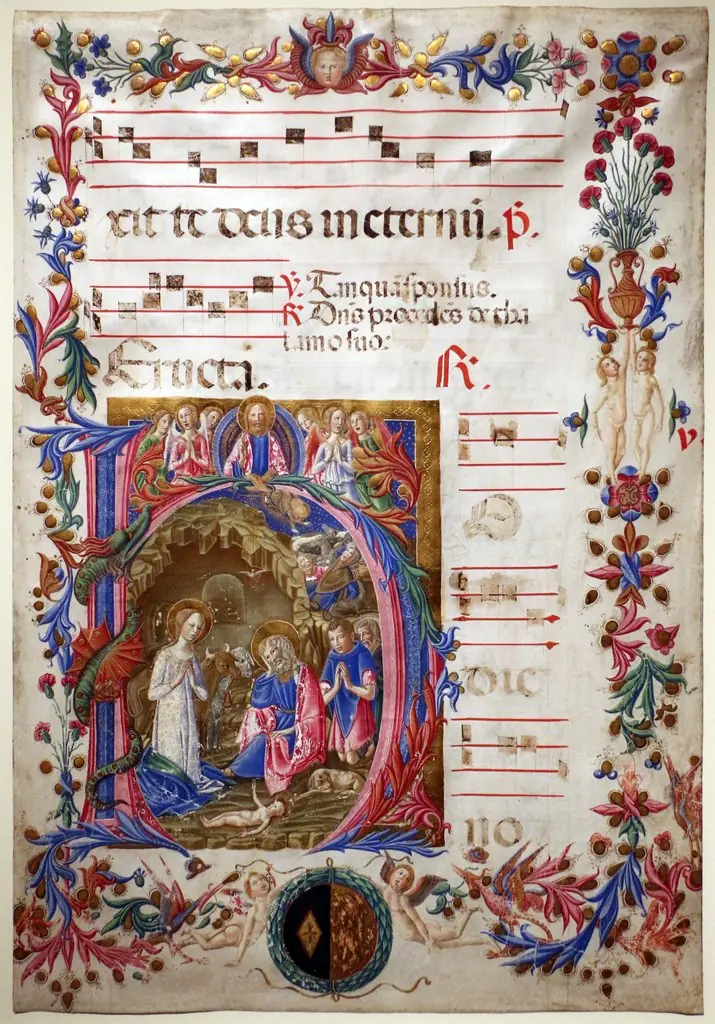 xit te deus in eternū. p̄.
V. Tanquā sponsus.
R Dn̄s procedēs de tha
lamo suo:
Eructa. R.
H
O
v
die
no